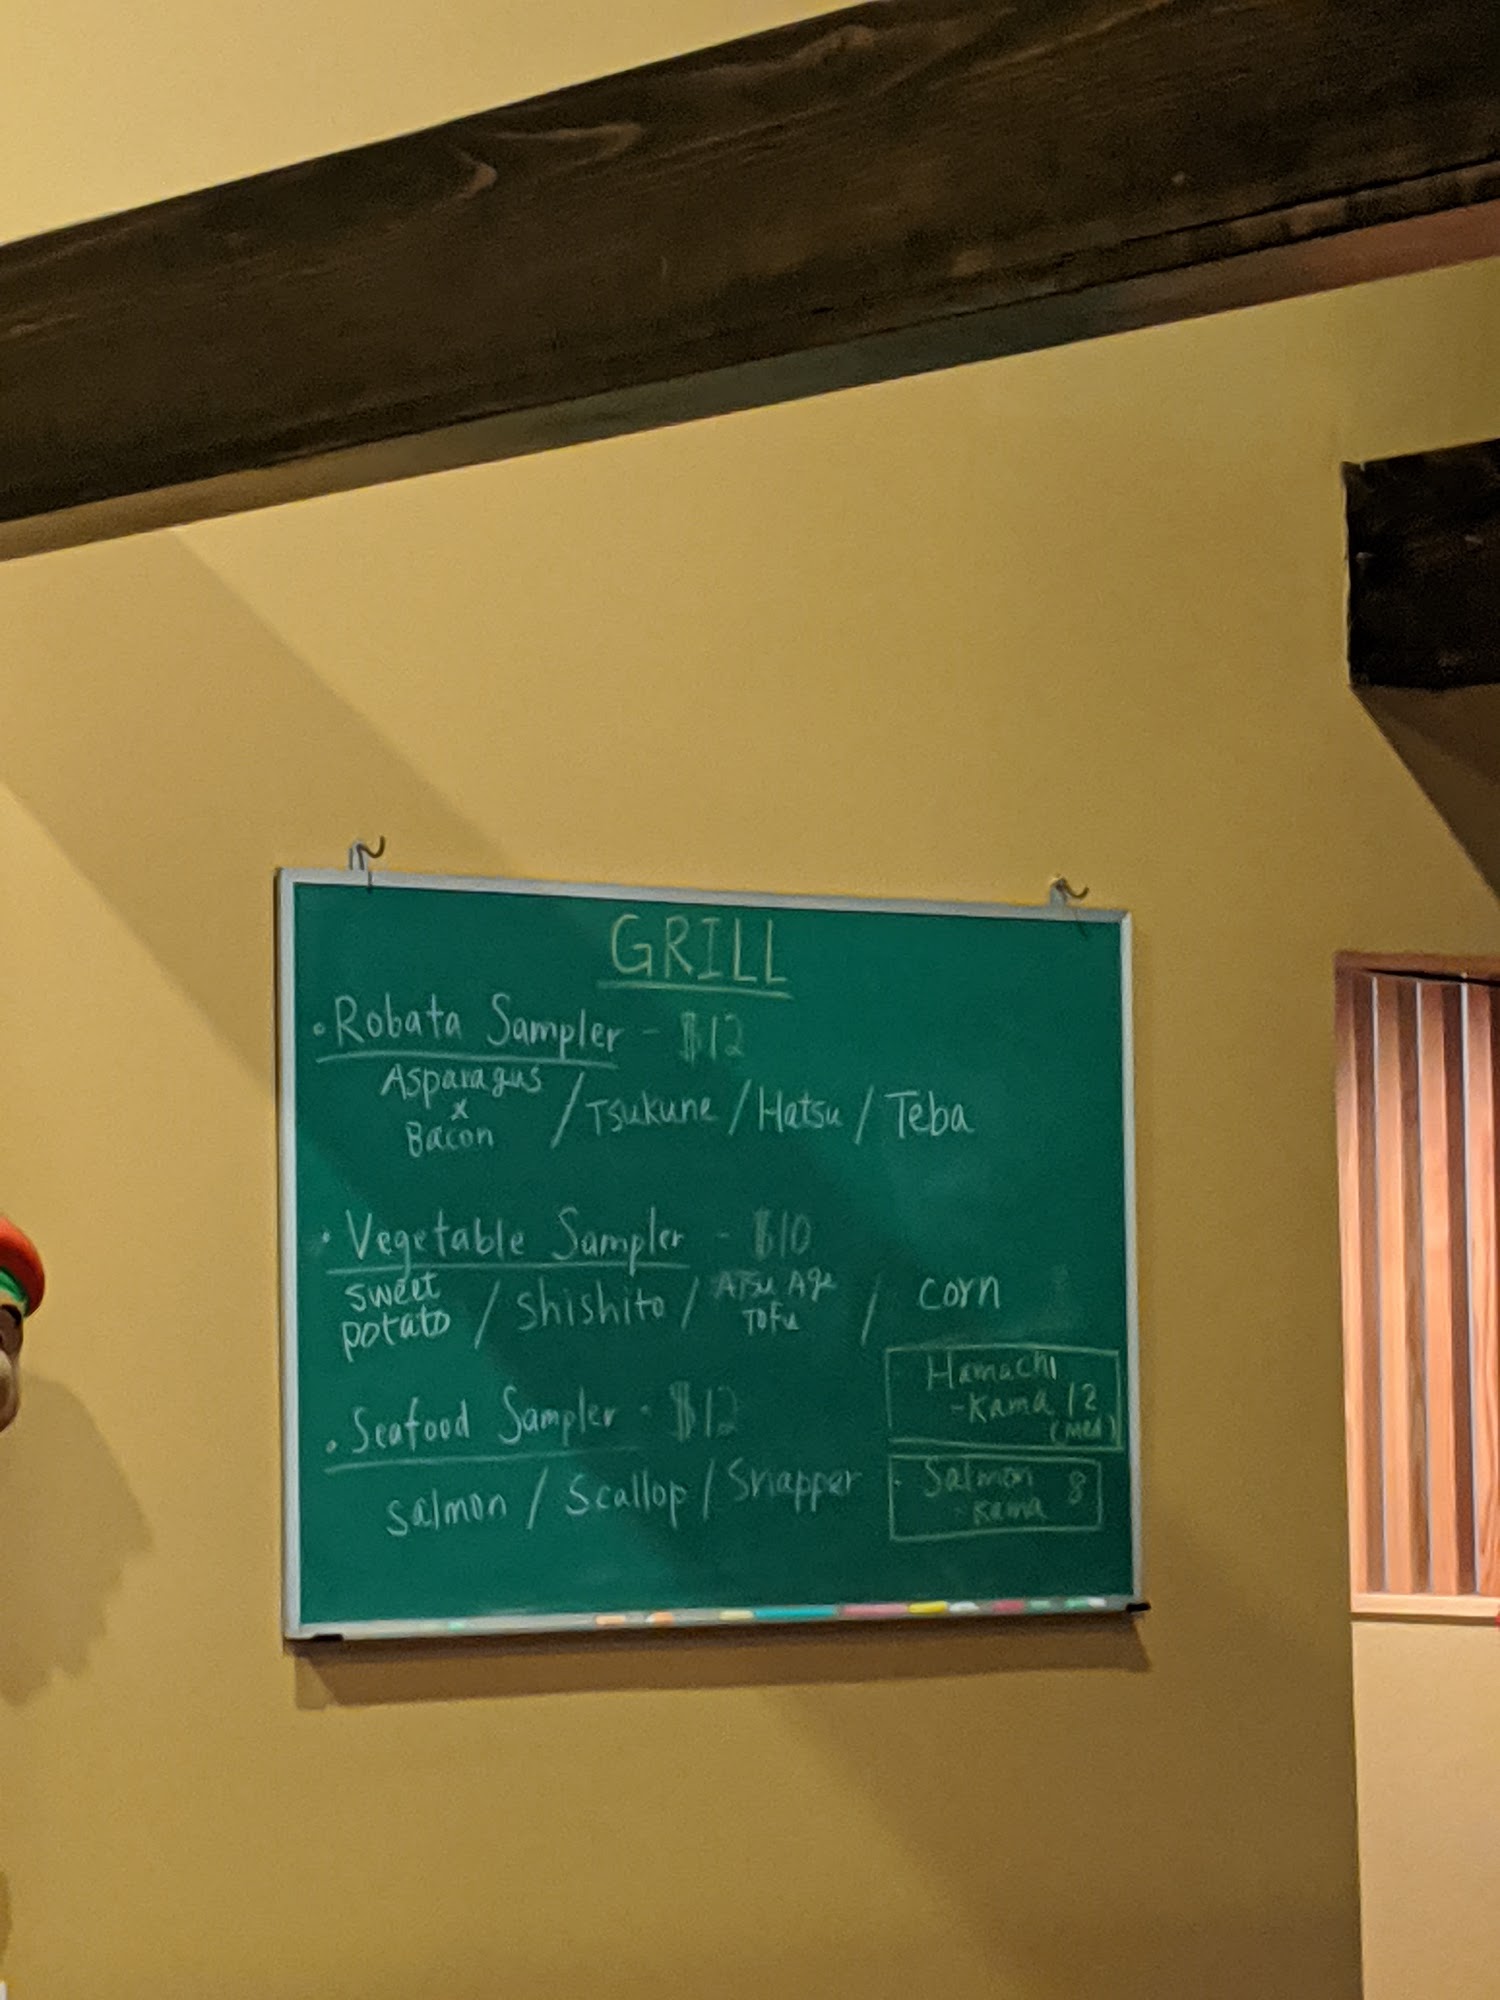 GRILL
• Robata Sampler - $12
Asparagus
x
Bacon
/ Tsukune / Hatsu / Teba
• Vegetable Sampler - $10
sweet
potato
/ Shishito /
Atsu Age
Tofu
/ corn
• Seafood Sampler - $12
salmon / Scallop / Snapper
Hamachi
-Kama 12
(med)
• Salmon
-Kama 8